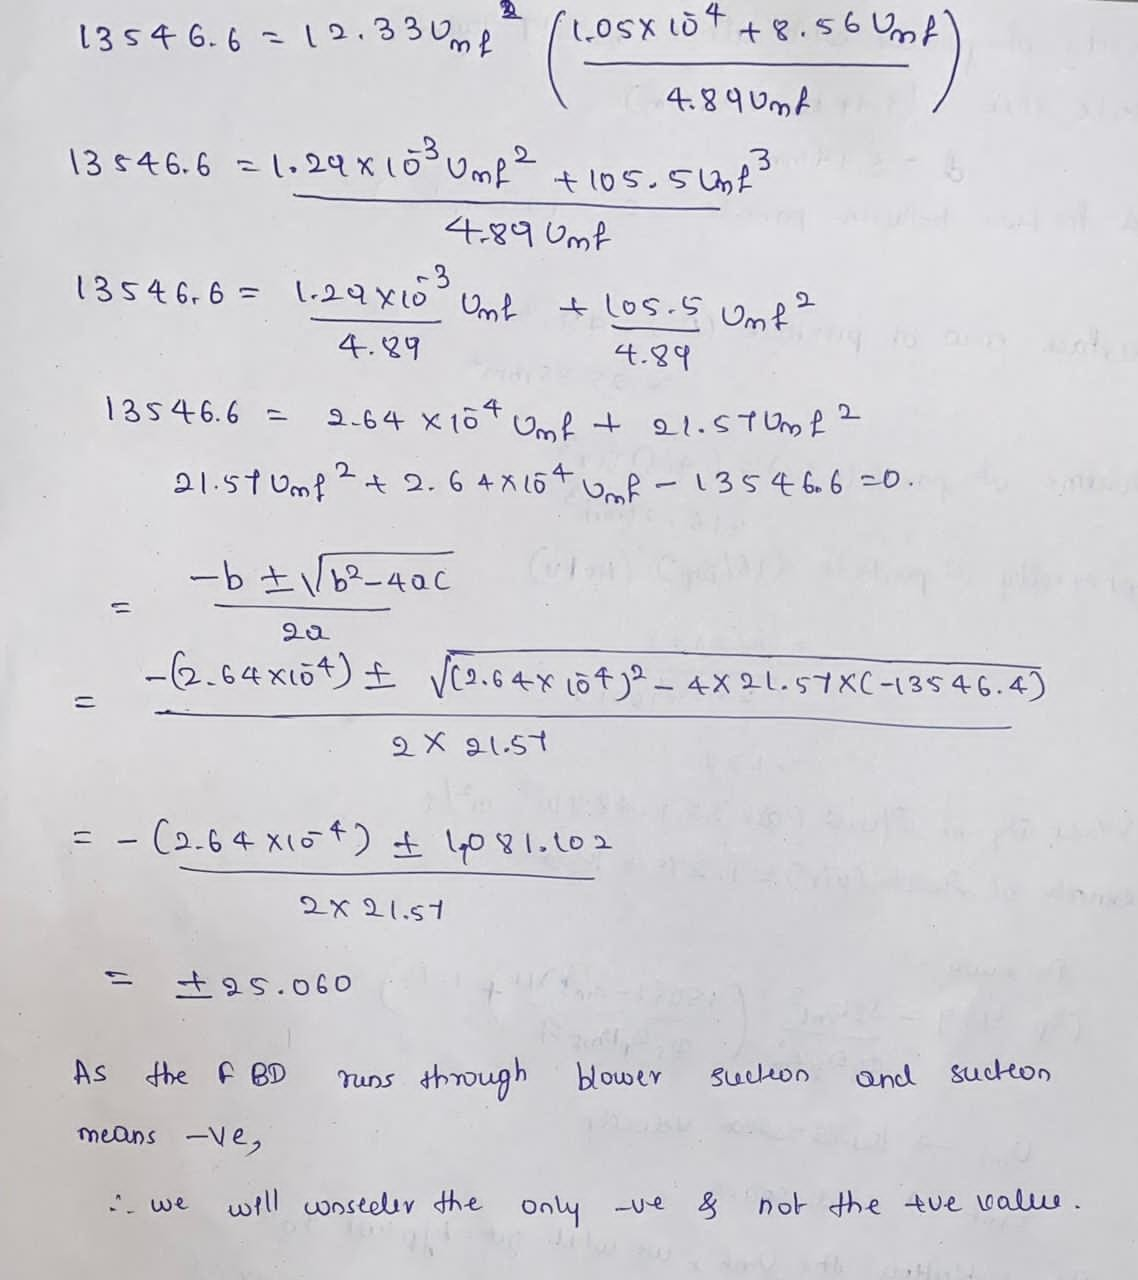 13546.6 = 12.33 Umf² (1.05 x 10⁻⁴ + 8.56 Umf)
4.89 Umf
13546.6 = 1.29 x 10⁻³ Umf² + 105.5 Umf³
4.89 Umf
13546.6 = 1.29 x 10⁻³ Umf + 105.5 Umf²
4.89 4.89
13546.6 = 2.64 x 10⁻⁴ Umf + 21.57 Umf²
21.57 Umf² + 2.64 x 10⁻⁴ Umf - 13546.6 = 0.
= -b ± √b²-4ac
2a
= -(2.64 x 10⁻⁴) ± √(2.64 x 10⁻⁴)² - 4 x 21.57 x (-13546.4)
2 x 21.57
= -(2.64 x 10⁻⁴) ± 1,081.102
2 x 21.57
= ± 25.060
As the FBD runs through blower suction and suction
means -ve,
∴ we will consider the only -ve & not the +ve value.